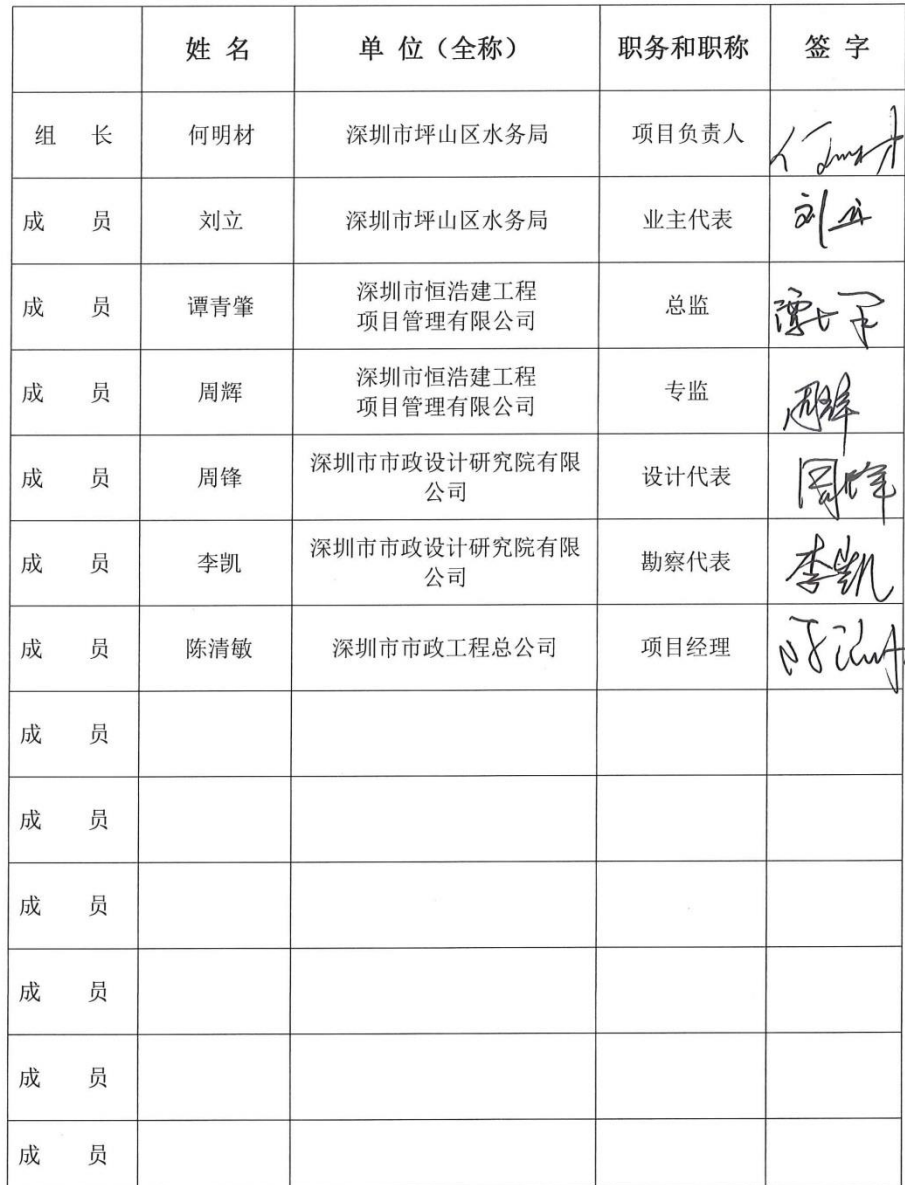 姓 名 单 位（全称） 职务和职称 签 字
组 长 何明材 深圳市坪山区水务局 项目负责人
成 员 刘立 深圳市坪山区水务局 业主代表 刘立
成 员 谭青肇 深圳市恒浩建工程
项目管理有限公司 总监
成 员 周辉 深圳市恒浩建工程
项目管理有限公司 专监 周辉
成 员 周锋 深圳市市政设计研究院有限
公司 设计代表 周锋
成 员 李凯 深圳市市政设计研究院有限
公司 勘察代表 李凯
成 员 陈清敏 深圳市市政工程总公司 项目经理
成 员
成 员
成 员
成 员
成 员
成 员